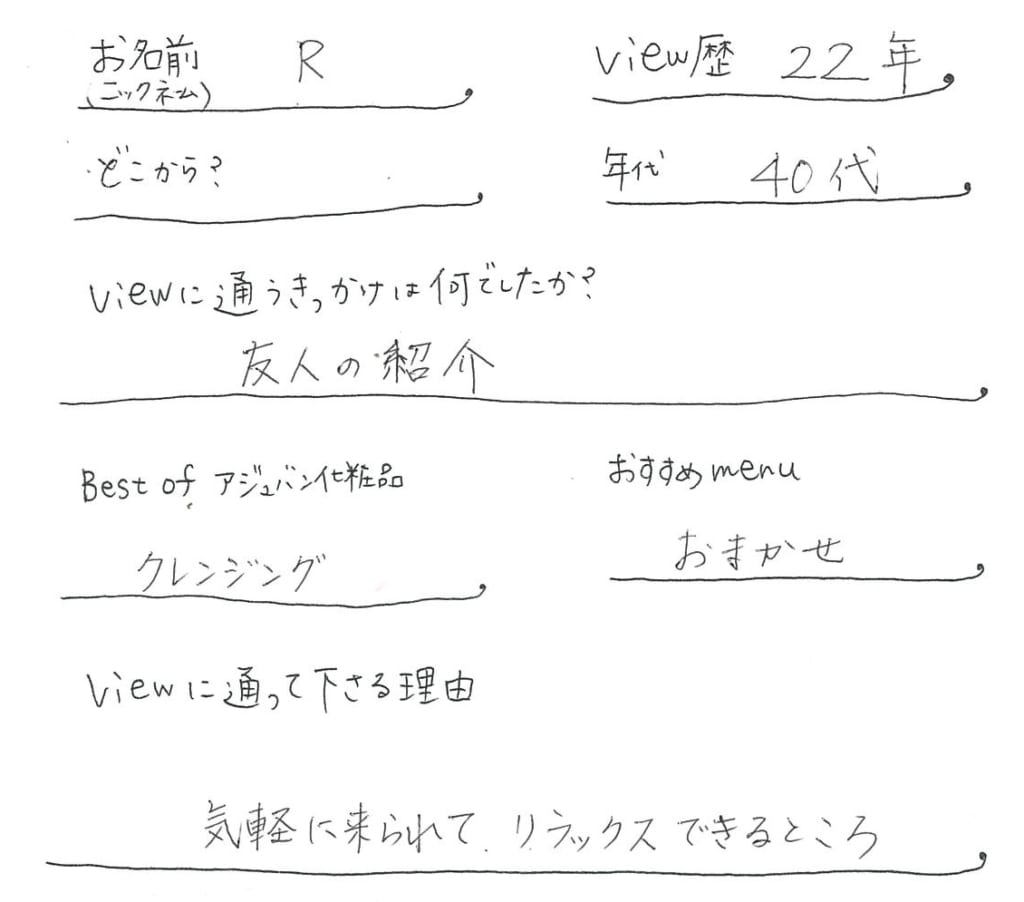 お名前 R view歴 22年
(ニックネーム)
どこから? 年代 40代
viewに通うきっかけは何でしたか?
友人の紹介
Best of アジュバン化粧品 おすすめmenu
クレンジング おまかせ
viewに通って下さる理由
気軽に来られて リラックスできるところ